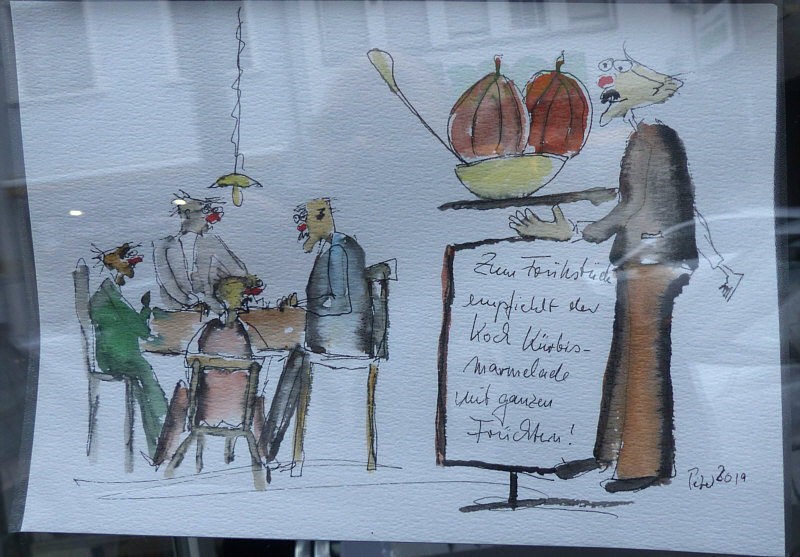 Zum Frühstück
empfiehlt der
Koch Kürbis-
marmelade
mit ganzen
Früchten!
2019